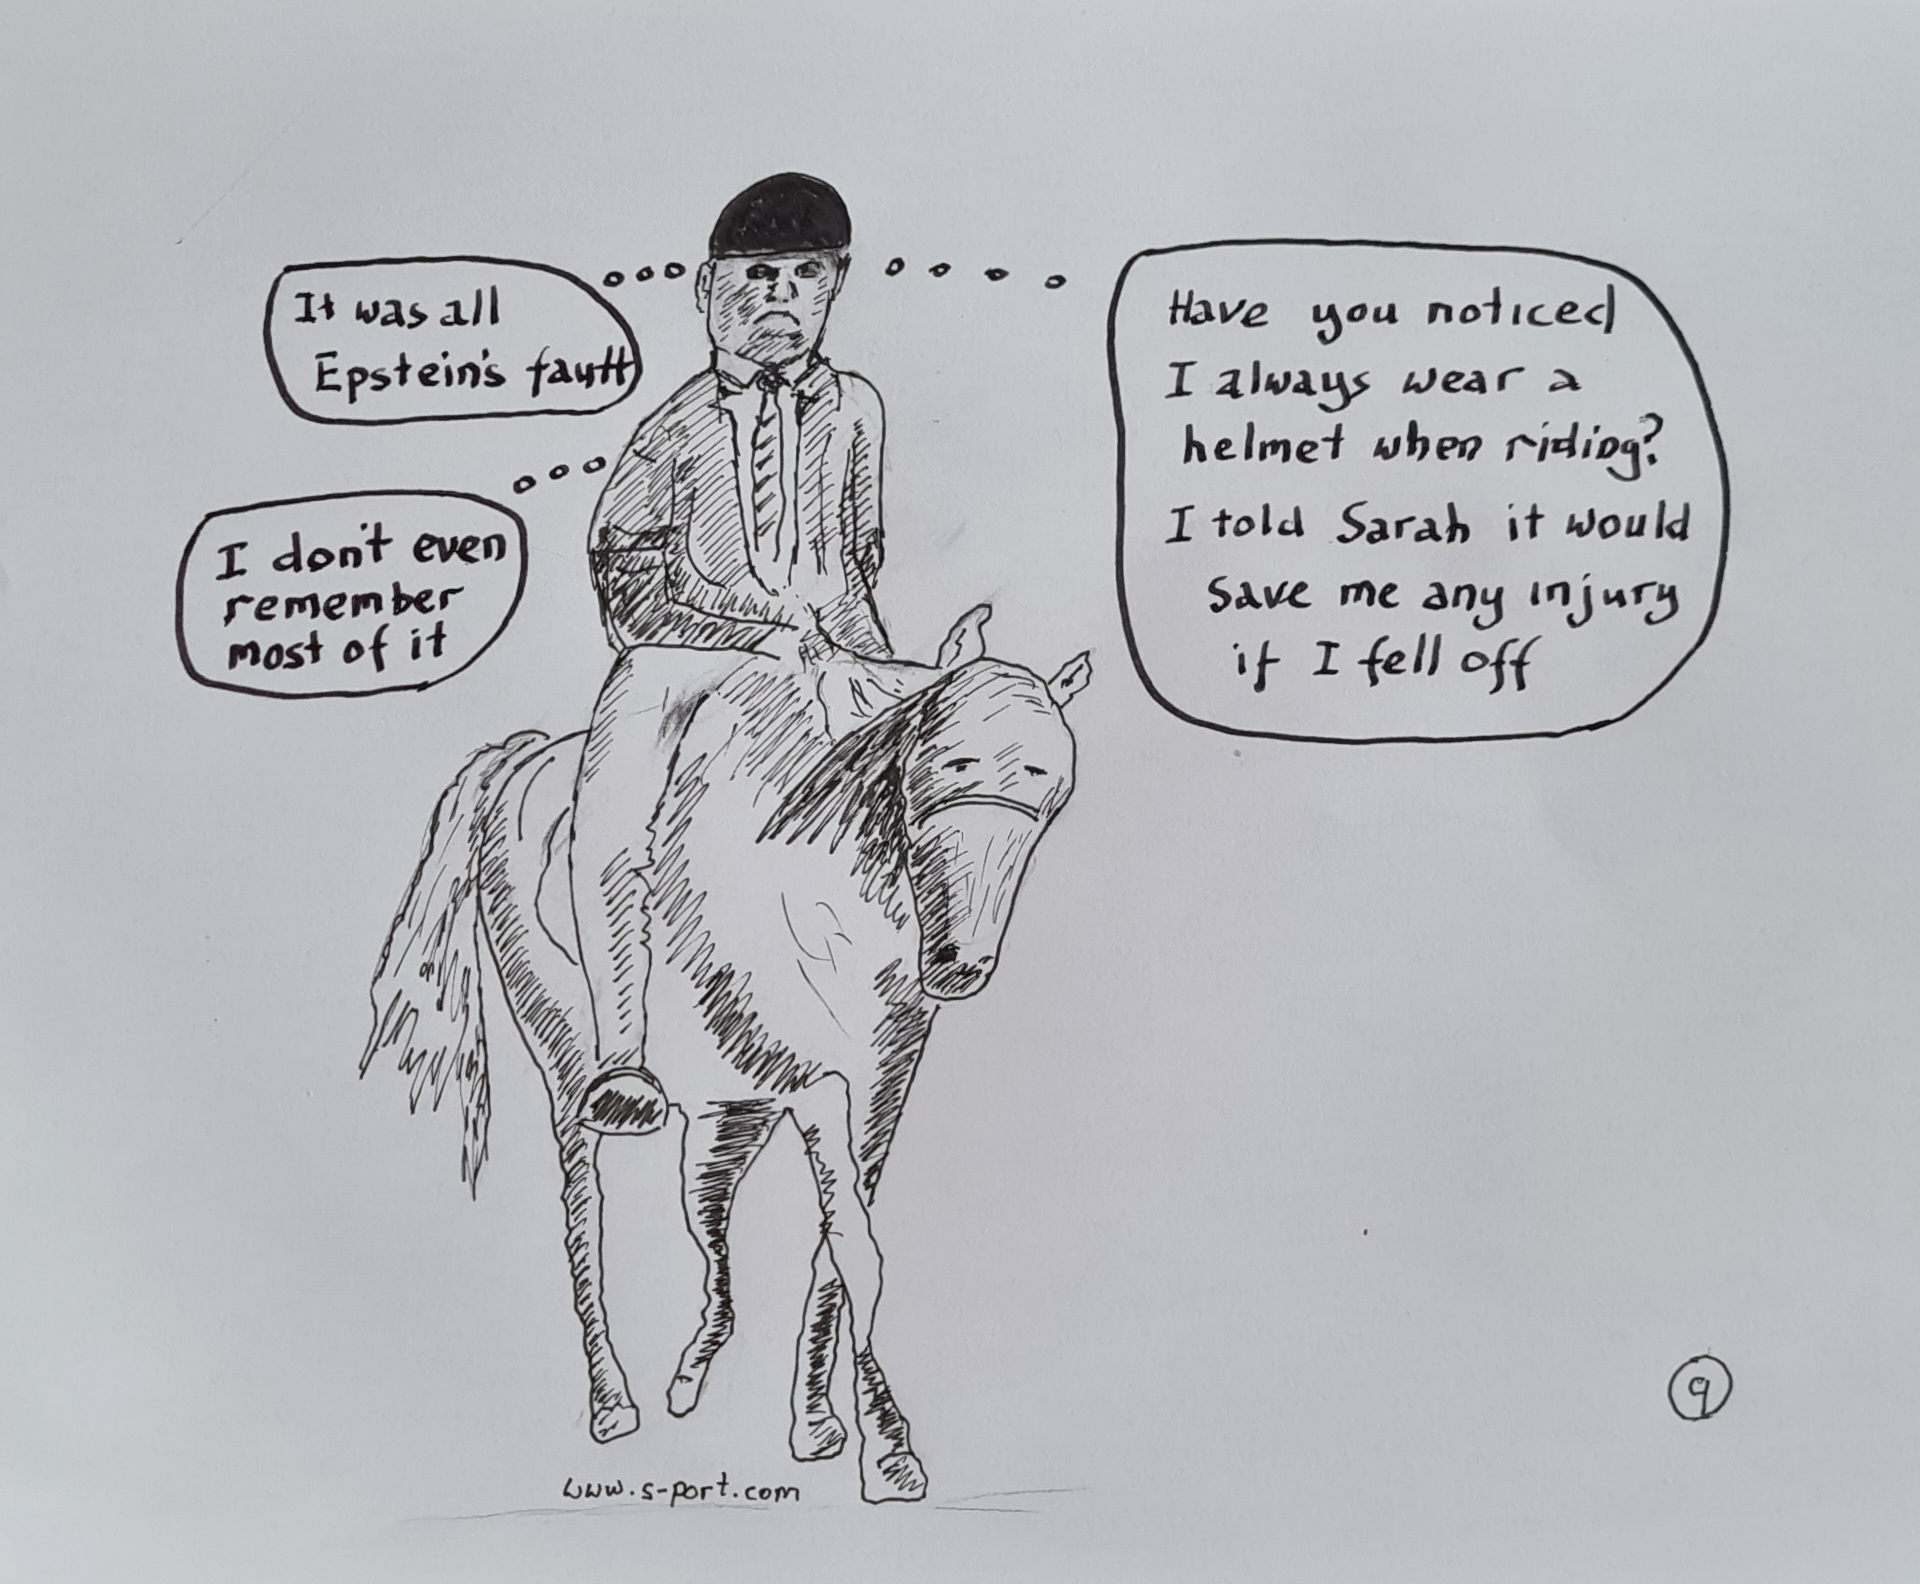 It was all
Epstein's fault
I don't even
remember
most of it
Have you noticed
I always wear a
helmet when riding?
I told Sarah it would
save me any injury
if I fell off
www.s-port.com
9